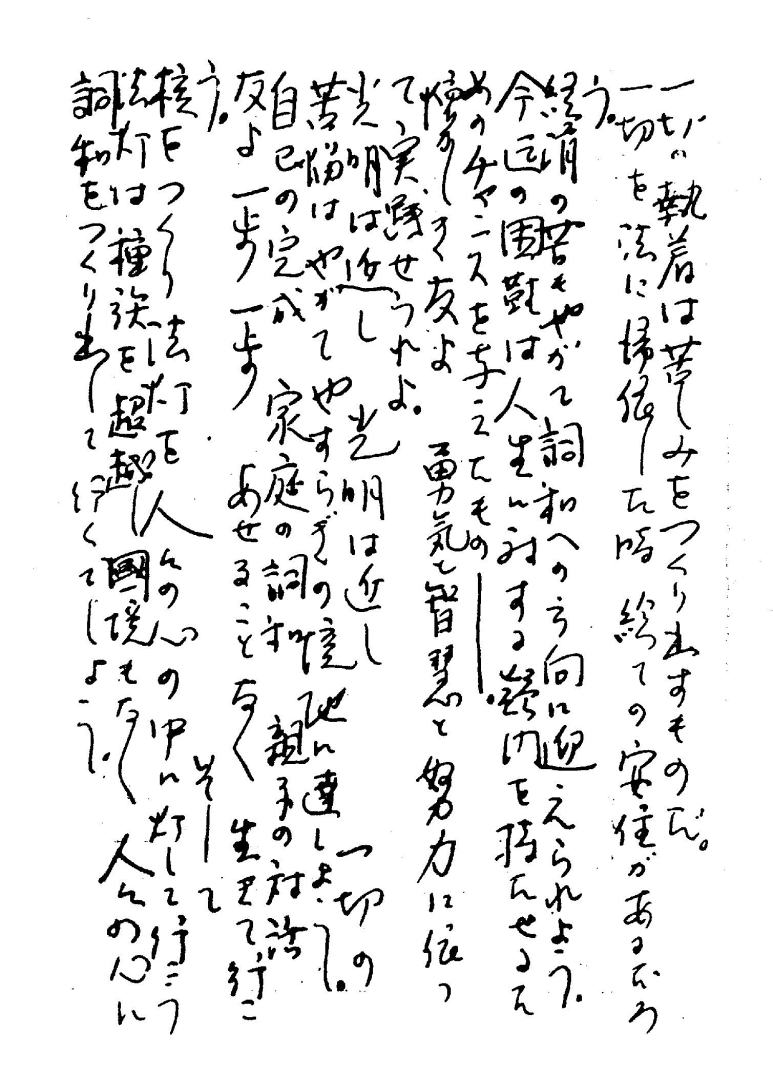 一切の執着は苦しみをつくり出すものだ。
一切を法に帰依した時 総ての安住があるだろ
う。
経済の苦もやがて調和への方向に迎えられよう。
今迄の困難は人生に対する疑問を持たせるた
めのチャンスを与えたもの――。
懐かしき友よ 勇気と智慧と努力に依っ
て実践せられよ。
光明は近し 光明は近し 一切の
苦悩はやがてやすらぎの境地に達しよう。
自己の完成 家庭の調和 親子の対話
友よ一歩一歩 あせることなく 生きて行こ
う。 そして
核をつくり法灯を人々の心の中に灯して行こう
法灯は種族を超越し 國境もなく 人々の心に
調和をつくり出して行くでしょう。